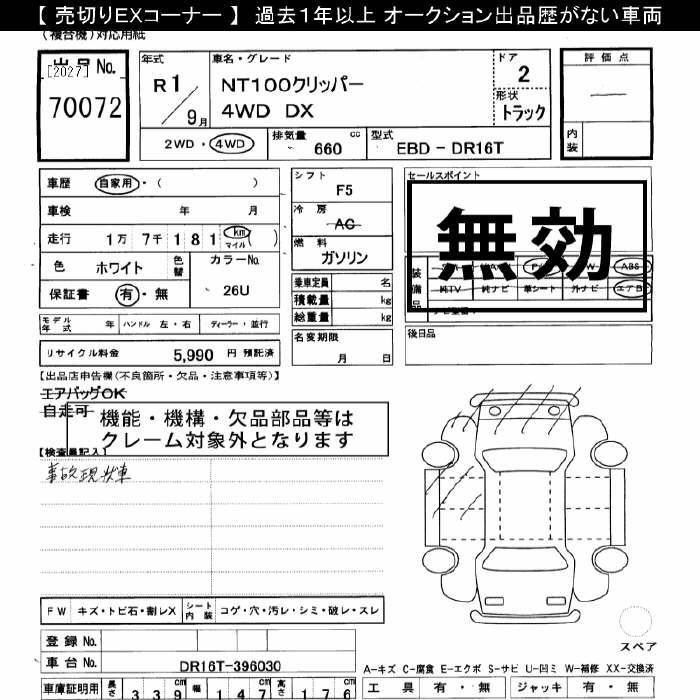 【 売切りEXコーナー 】 過去1年以上 オークション出品歴がない車両
(複合機)対応用紙
出品No.
[2027]
70072
年式
R 1 / 9月
車名・グレード
NT100クリッパー
4WD DX
ドア
2
形状
トラック
評価点
内装
2WD・4WD
排気量 660 cc
型式 EBD - DR16T
車歴 自家用・( )
車検 年 月
走行 1万 7千 1 8 1 km マイル ( )
色 ホワイト 色替
カラーNo. 26U
保証書 有・無
シフト F5
冷房 AC
燃料 ガソリン
乗車定員 名
積載量 kg
総重量 kg
名変期限
月 日
セールスポイント
無効
装備品
ABS
純TV 純ナビ 革シート 外ナビ エアB
後日品
モデル年式 年 ハンドル 左・右 ディーラー・並行
リサイクル料金 5,990 円 預託済
【出品店申告欄(不良箇所・欠品・注意事項等)】
エアバッグOK
自走可
機能・機構・欠品部品等は
クレーム対象外となります
【検査員記入】
事故現状車
FW キズ・トビ石・割レX シート内装 コゲ・穴・汚レ・シミ・破レ・スレ
登録 No.
車台 No. DR16T-396030
車庫証明用 長さ 3 3 9 cm 幅 1 4 7 cm 高さ 1 7 6 cm
スペア
A-キズ C-腐食 E-エクボ S-サビ U-凹ミ W-補修 XX-交換済
工具 有・無 ジャッキ 有・無